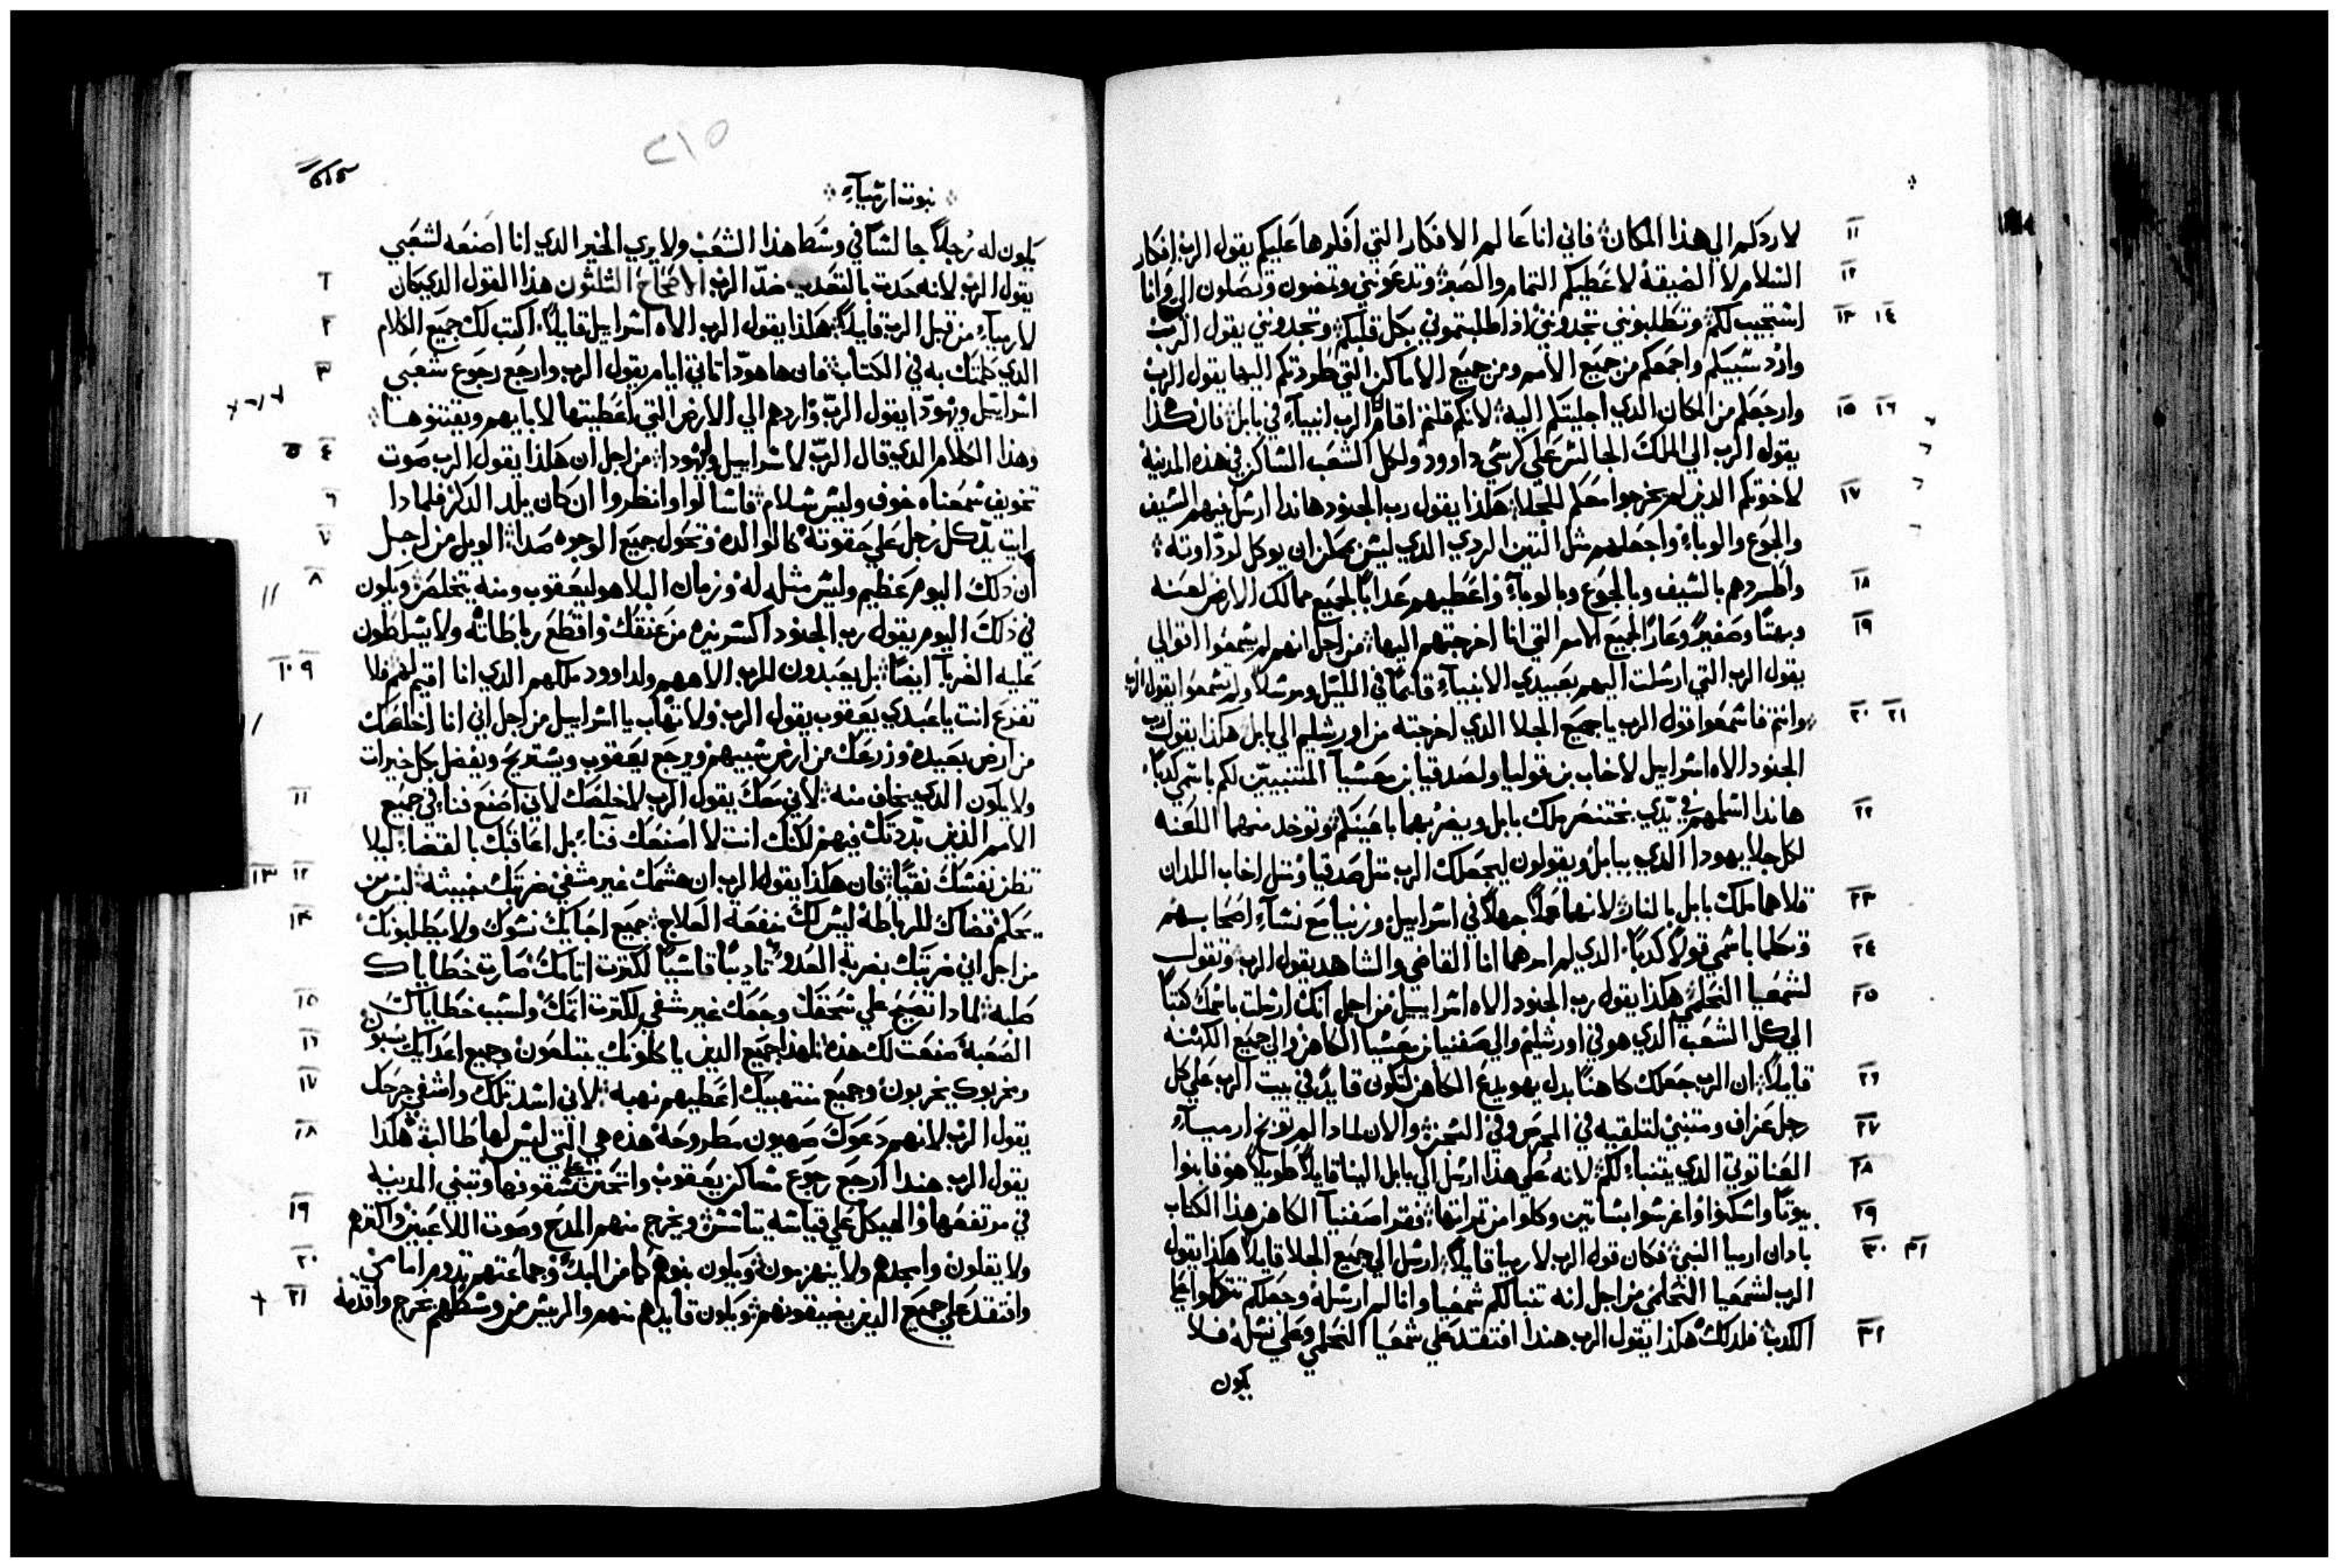 لاردكم الي هذا المكان فاني انا عالم الافكار التي افكرها عليكم يقول الرب افكار
١١
السلام لا الضيقة لاعطيكم التمام والصبر وتدعونني وتمضون وتصلون الي وانا
١٢
استجيب لكم وتطلبونني تجدونني اذا طلبتموني بكل قلبكم وتجدونني يقول الرب
١٣ ١٤
وارد سبيكم واجمعكم من جميع الامم ومن جميع الاماكن التي طردتكم اليها يقول الرب
وارجعكم من المكان الدي اجليتكم اليه لانكم قلتم اقام الرب انبياء في بابل فان هكذا
١٥ ١٦
يقول الرب الي الملك الجالس علي كرسي داوود ولكل الشعب الساكن في هذه المدينة
لاخوتكم الدين لم يخرجوا معكم للجلا هكذا يقول رب الجنود هاندا ارسل فيهم السيف
١٧
والجوع والوباء واجعلهم مثل التين الردي الدي ليس يمكن ان يوكل لرداوته
واطردهم بالسيف وبالجوع وبالوباء واعطيهم عدابا لجميع ممالك الارض لعنه
١٨
وبهتا وصفيرا وعارا لجميع الامم التي انا اخرجتهم اليها من اجل انهم لم يسمعوا اقوالي
١٩
يقول الرب التي ارسلت اليهم بعبيدي الانبياء قايما في الليل ومرسلا ولم تسمعوا يقول الرب
وانتم فاسمعوا قول الرب يا جميع الجلا الدي اخرجته من اورشليم الي بابل هكذا يقول رب
٢٠ ٢١
الجنود الاه اسراييل لاخاب بن قوليا ولصدقيا بن معسيا المتنبيين لكم باسمي كدبا
هاندا اسلمهم في يدي بختنصر ملك بابل ويضربهما باعينكم وتوخد منهما اللعنه
٢٢
لكل جلا يهودا الدي ببابل ويقولون ليجعلك الرب مثل صدقيا ومثل اخاب اللدان
قلاهما ملك بابل بالنار لانهما عملا جهلا في اسراييل وزنيا مع نساء اصحابهم
٢٣
وتكلما باسمي قولا كدبا الدي لم امرهما انا القاضي والشاهد يقول الرب وتقول
٢٤
لشمعيا النحلمي هكذا يقول رب الجنود الاه اسراييل من اجل انك ارسلت باسمك كتبا
٢٥
الي كل الشعب الدي هو في اورشليم والي صفنيا بن معسيا الكاهن والي جميع الكهنه
قايلا ان الرب جعلك كاهنا بدل يهويدع الكاهن لتكون قايدا في بيت الرب علي كل
٢٦
رجل عزاف ومتنبي لتلقيه في المحرص وفي السجن والان لمادا لم توبخ ارمياء
٢٧
العناتوتي الدي يتنباء لكم لانه علي هذا ارسل الي بابل الينا قايلا طويلا هو فابنوا
٢٨
بيوتا واسكنوا واغرسوا بساتين وكلوا من تمراتها فقرا صفنيا الكاهن هذا الكتاب
٢٩
بادان ارميا النبي فكان قول الرب لارميا قايلا ارسل الي جميع الجلا قايلا هكذا يقول
٣٠ ٣١
الرب لشمعيا النحلمي من اجل انه تنبا لكم شمعيا وانا لم ارسله وجعلكم تتكلوا علي
الكدب فلدلك هكذا يقول الرب هندا افتقد علي شمعيا النحلمي وعلي نسله فلا
٣٢
يكون
٢١٥
نبوت ارمياء
يكون له رجلا جالسا في وسط هذا الشعب ولا يري الخير الدي انا اصنعه لشعبي
يقول الرب لانه حدث بالتعدي ضد الرب الاصحاح الثلثون هذا القول الدي كان
١
لارمياء من قبل الرب قايلا هكذا يقول الرب الاه اسراييل قايلا اكتب لك جميع الكلام
٢
الدي كلمتك به في الكتاب فان ها هودا تاتي ايام يقول الرب وارجع رجوع شعبي
٣
اسراييل ويهودا يقول الرب واردهم الي الارض التي اعطيتها لابايهم ويقتنوها
وهذا الكلام الدي قال الرب لاسراييل وليهودا من اجل ان هكذا يقول الرب صوت
٤ ٥
تخويف سمعناه خوف وليس سلام فاسالوا وانظروا ان كان يلد الدكر فلمادا
٦
رايت يد كل رجل علي حقوته كالوالده وتحول جميع الوجوه صداء الويل من اجل
٧
ان دلك اليوم عظيم وليس مثله له وزمان البلا هو ليعقوب ومنه يتخلص ويكون
٨
في ذلك اليوم يقول رب الجنود اكسر نيره من عنقك واقطع رباطاته ولا يتسلطون
عليه الغربآ ايضا بل يعبدون للرب الاههم ولداوود ملكهم الدي انا اقيم لهم فلا
٩ ١٠
تفزع انت يا عبدي يعقوب يقول الرب ولا تهاب يا اسراييل من اجل اني انا اخلصك
من ارض بعيده وزرعك من ارض سبيهم ويرجع يعقوب ويستريح ويفضل بكل خيرات
ولا يكون الدي يخاف منه لاني معك يقول الرب لاخلصك لاني اصنع فناء في جميع
١١
الامم الذين بددتك فيهم لكنك انت لا اصنعك فناء بل اعاقبك بالقضا ليلا
تظن نفسك نقيا فان هكذا يقول الرب ان هشمك غير مشفي ضربتك خبيثه ليس من
١٢ ١٣
يحكم قضاك للرباطة ليس لك منفعة العلاج جميع احبايك نسوك ولا يطلبونك
١٤
من اجل اني ضربتك بضربة العدو تاديبا قاسيا لكترت اتامك صارت خطاياك
صلبه لمادا تضيع علي سحقك وجعك غير شفي لكترت اتمك ولسبب خطاياك
١٥
الصعبة صنعت لك هذه لهذا جميع الدين ياكلونك يبتلعون وجميع اعدايك يسبون
١٦
ومخربوك يخربون وجميع منتهبيك اعطيهم نهبه لاني اسد تكلك واشفي جرحك
١٧
يقول الرب لانهم دعوك صهيون مطروحة هذه هي التي ليس لها طالب هكذا
١٨
يقول الرب هندا ارجع رجوع مساكن يعقوب وانحنن علي سقوفها وتبني المدينه
في مرتفعها والهيكل علي قياسه يتاسس ويخرج منهم المدح وصوت اللاعبين واكترهم
١٩
ولا يقلون وامجدهم ولا ينهزمون ويكون بنوهم كما من البدء وجماعتهم تدوم امامي
٢٠
وافتقد علي جميع الدين يضيقونهم ويكون قايدهم منهم والرييس من وسطهم يخرج واقدمه
٢١